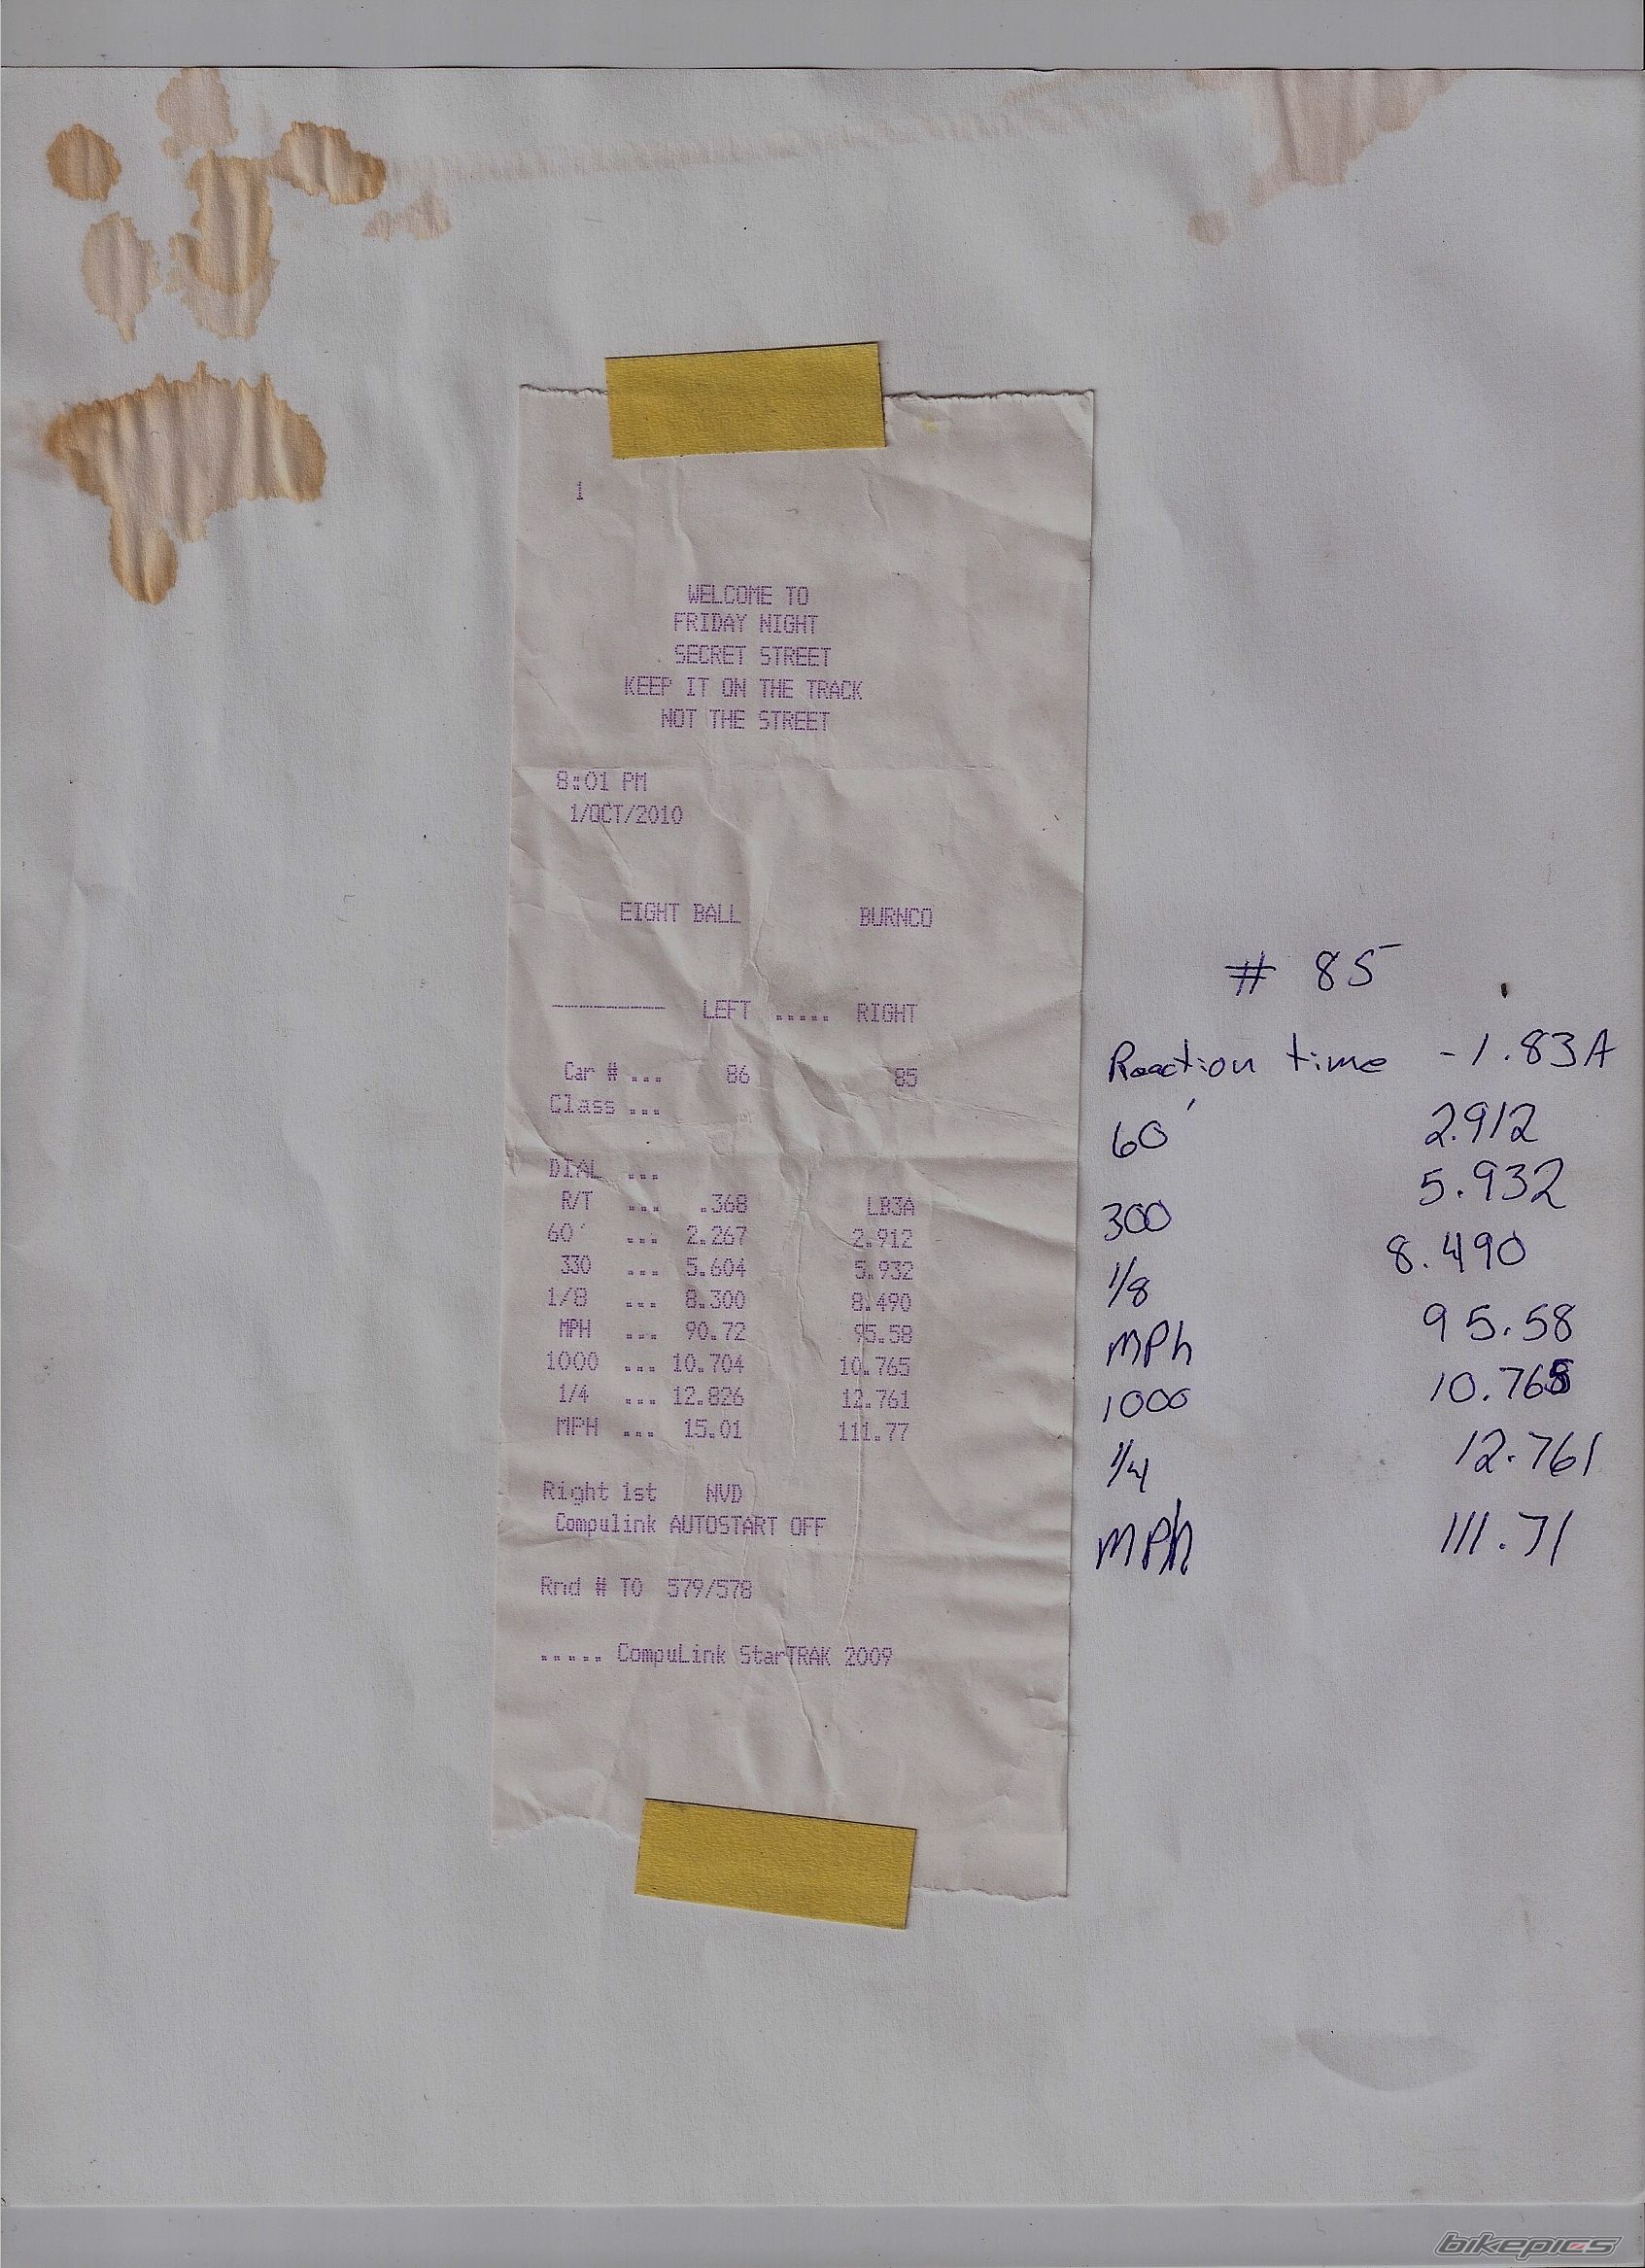 1
WELCOME TO
FRIDAY NIGHT
SECRET STREET
KEEP IT ON THE TRACK
NOT THE STREET
8:01 PM
1/OCT/2010
EIGHT BALL BURNCO
---------- LEFT ..... RIGHT
Car # ... 86 85
Class ...
DIAL ...
R/T ... .368
60' ... 2.267 2.912
330 ... 5.604 5.932
1/8 ... 8.300 8.490
MPH ... 90.72 95.58
1000 ... 10.704 10.765
1/4 ... 12.826 12.761
MPH ... 15.01 111.77
Right 1st NVD
Compulink AUTOSTART OFF
Rnd # TO 579/578
..... CompuLink StarTRAK 2009
# 85
Reaction time -1.83A
60' 2.912
300 5.932
1/8 8.490
MPh 95.58
1000 10.765
1/4 12.761
MPh 111.71
bikepics